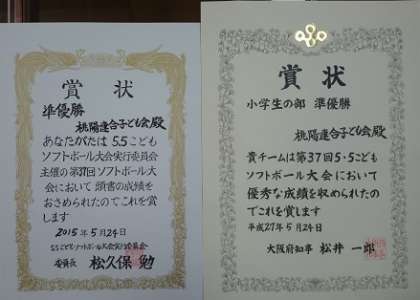 賞状
準優勝
桃陽連合子ども会殿
あなたがたは5.5こども
ソフトボール大会実行委員会
主催の第37回ソフトボール大
会において頭書の成績を
おさめられたのでこれを賞
します
2015年5月24日
5.5こどもソフトボール大会実行委員会
委員長 松久保 勉
賞状
小学生の部 準優勝
桃陽連合子ども会殿
貴チームは第37回5・5こども
ソフトボール大会において
優秀な成績を収められたの
でこれを賞します
平成27年5月24日
大阪府知事 松井一郎